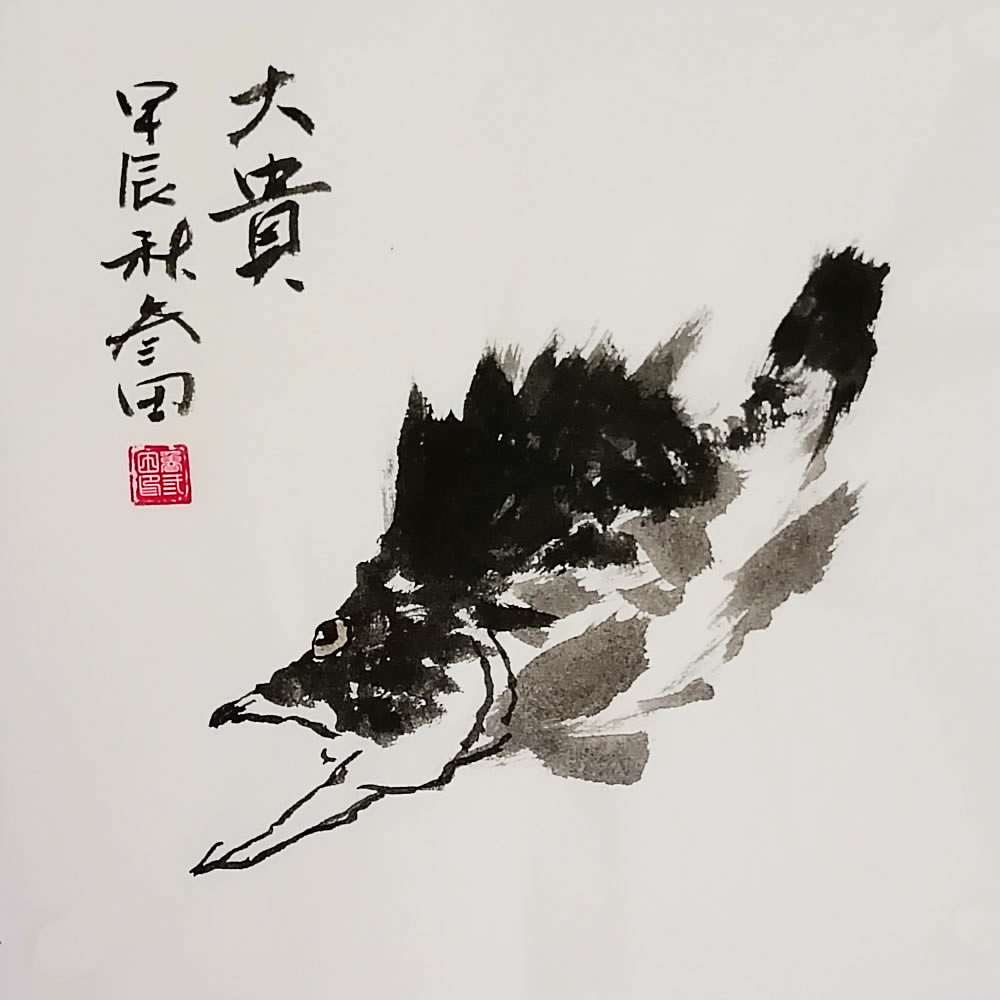 大貴
甲辰秋叁田